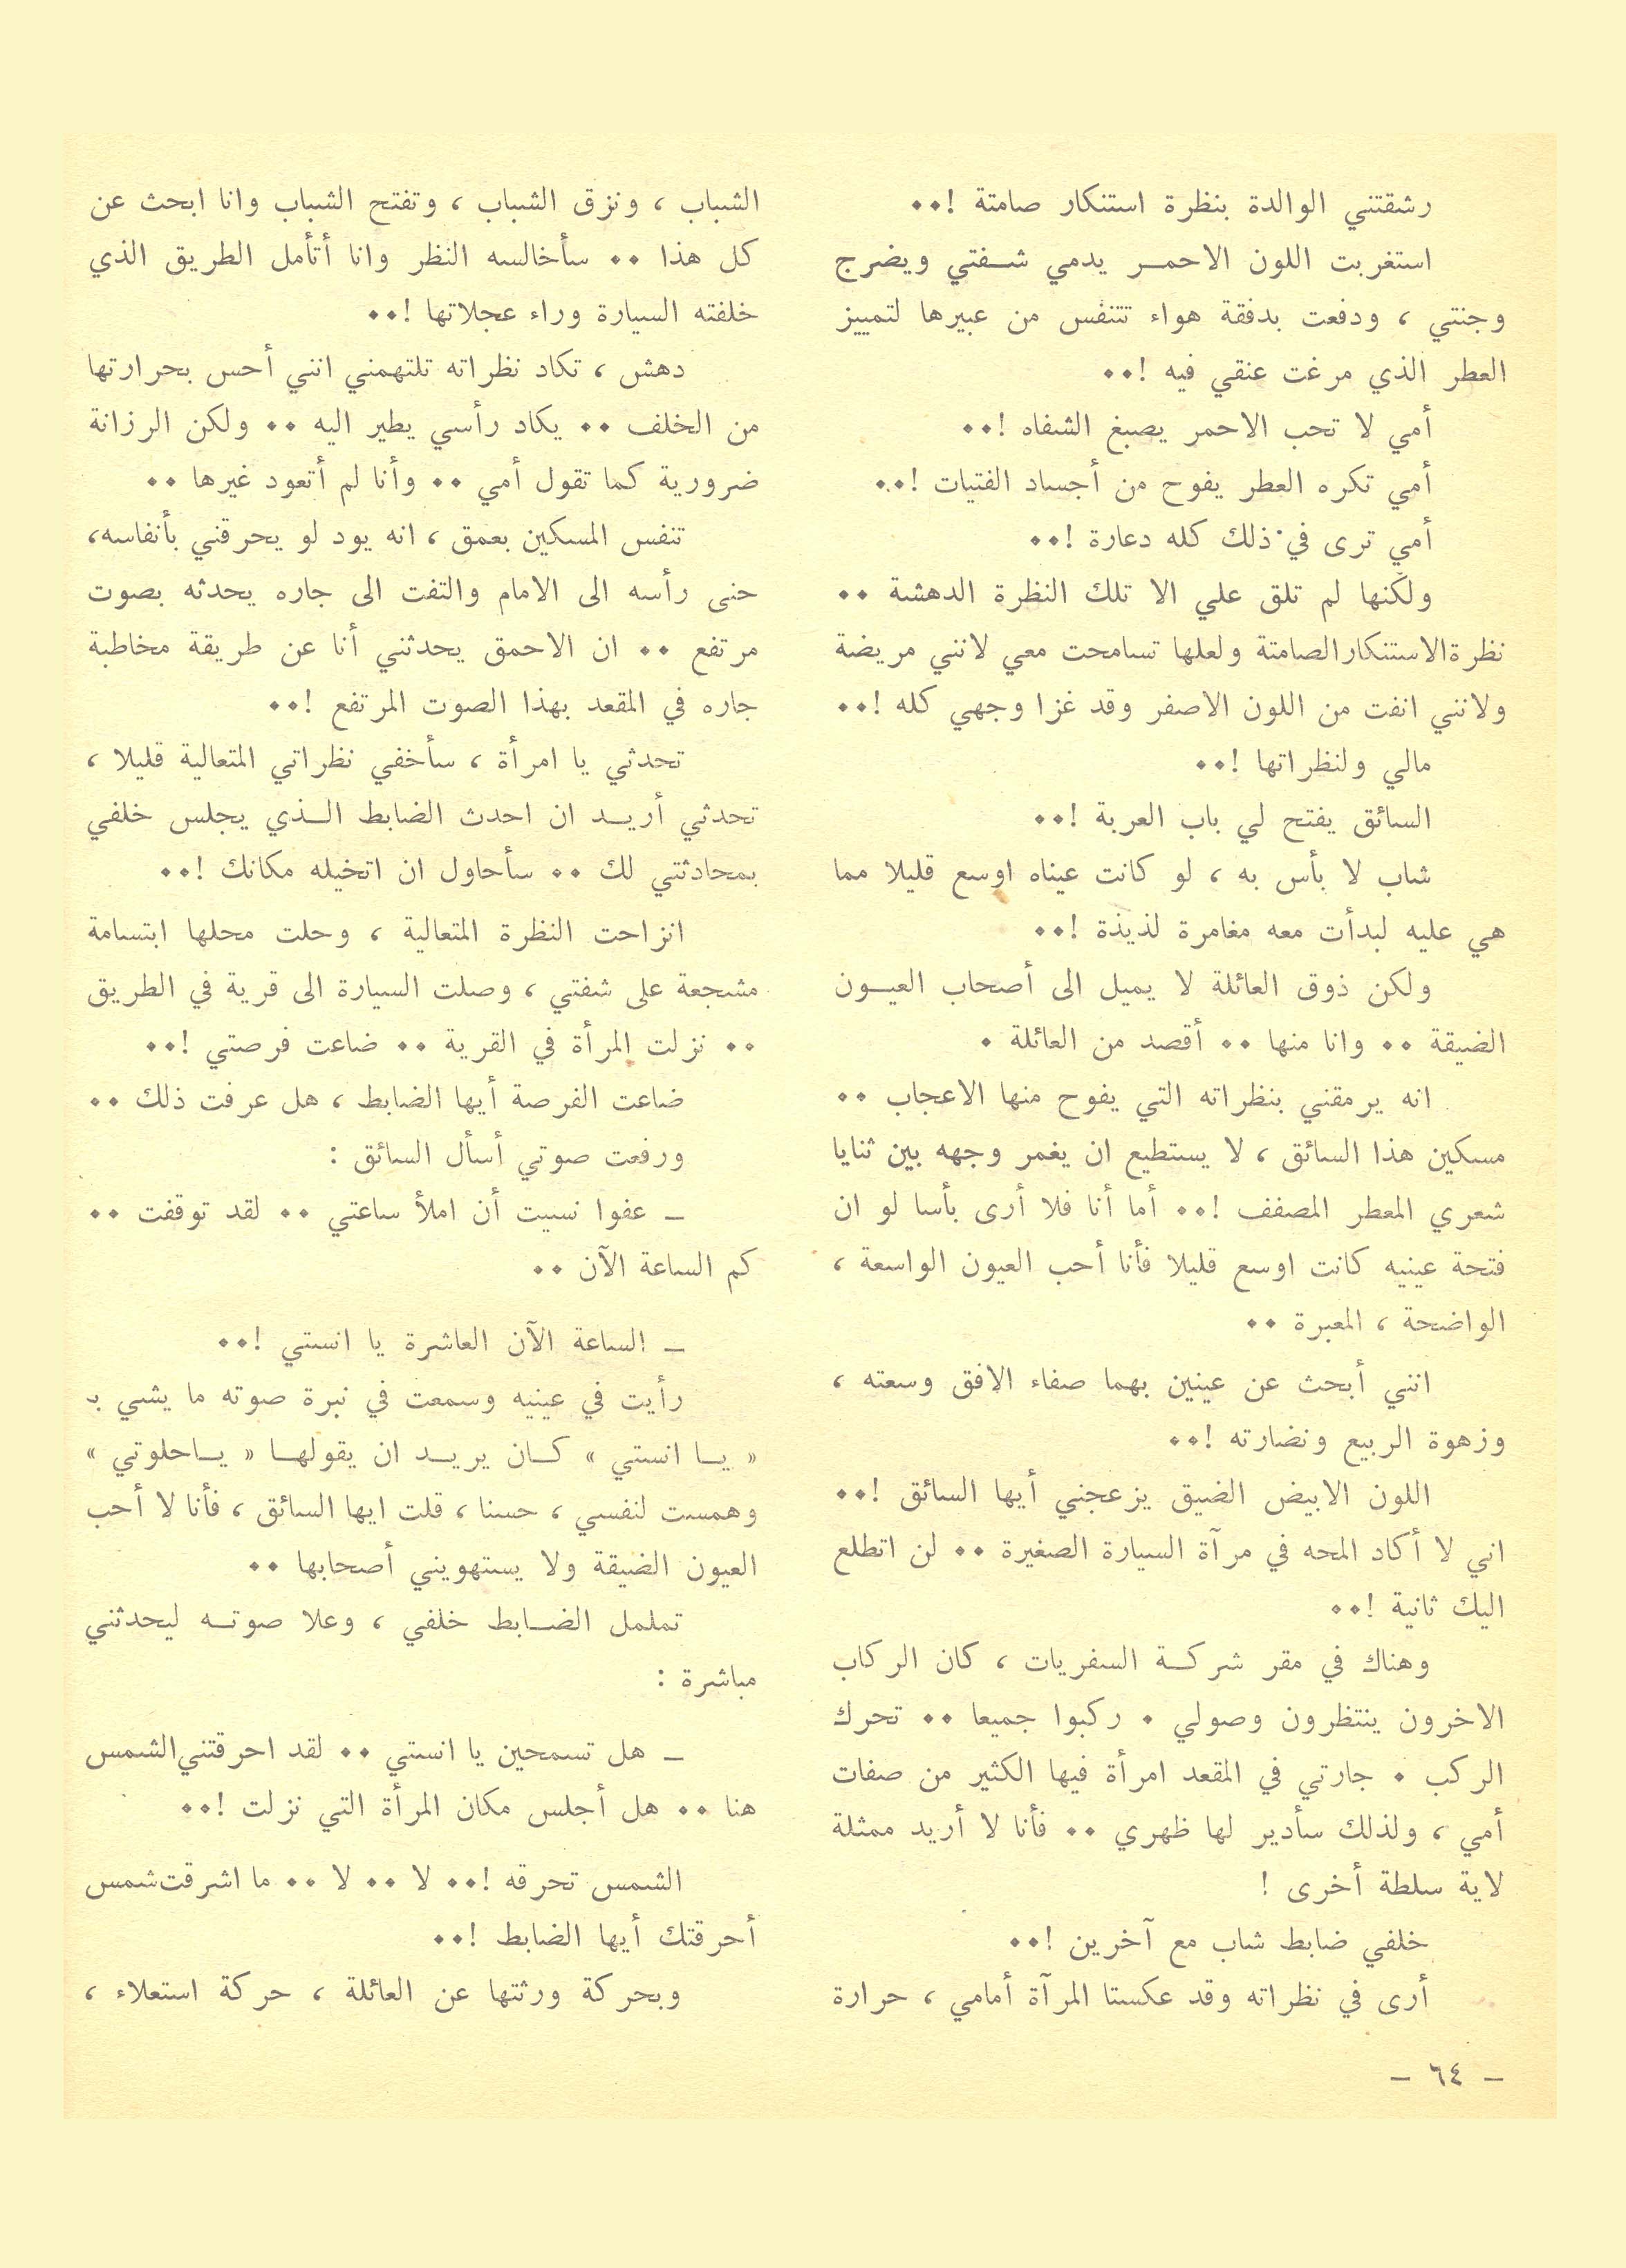 رشقتني الوالدة بنظرة استنكار صامتة !٠٠
استغربت اللون الاحمــر يدمي شــفتي ويضرج
وجنتي ، ودفعت بدفقة هواء تتنفس من عبيرها لتمييز
العطر الذي مرغت عنقي فيه !٠٠
أمي لا تحب الاحمر يصبغ الشفاه !٠٠
أمي تكره العطر يفوح من أجساد الفتيات !٠٠
أمي ترى في ذلك كله دعارة !٠٠
ولكنها لم تلق علي الا تلك النظرة الدهشة ٠٠
نظرة الاستنكار الصامتة ولعلها تسامحت معي لانني مريضة
ولانني انفت من اللون الاصفر وقد غزا وجهي كله !٠٠
مالي ولنظراتها !٠٠
السائق يفتح لي باب العربة !٠٠
شاب لا بأس به ، لو كانت عيناه اوسع قليلا مما
هي عليه لبدأت معه مغامرة لذيذة !٠٠
ولكن ذوق العائلة لا يميل الى أصحاب العيــون
الضيقة ٠٠ وانا منها ٠٠ أقصد من العائلة ٠
انه يرمقني بنظراته التي يفوح منها الاعجاب ٠٠
مسكين هذا السائق ، لا يستطيع ان يغمر وجهه بين ثنايا
شعري المعطر المصفف !٠٠ أما أنا فلا أرى بأسا لو ان
فتحة عينيه كانت اوسع قليلا فأنا أحب العيون الواسعة ،
الواضحة ، المعبرة ٠٠
انني أبحث عن عينين بهما صفاء الافق وسعته ،
وزهوة الربيع ونضارته !٠٠
اللون الابيض الضيق يزعجني أيها السائق !٠٠
اني لا أكاد المحه في مرآة السيارة الصغيرة ٠٠ لن اتطلع
اليك ثانية !٠٠
وهناك في مقر شركــة السفريات ، كان الركاب
الاخرون ينتظرون وصولي ٠ ركبوا جميعا ٠٠ تحرك
الركب ٠ جارتي في المقعد امرأة فيها الكثير من صفات
أمي ، ولذلك سأدير لها ظهري ٠٠ فأنا لا أريد ممثلة
لاية سلطة أخرى !
خلفي ضابط شاب مع آخرين !٠٠
أرى في نظراته وقد عكستا المرآة أمامي ، حرارة
الشباب ، ونزق الشباب ، وتفتح الشباب وانا ابحث عن
كل هذا ٠٠ سأخالسه النظر وانا أتأمل الطريق الذي
خلفته السيارة وراء عجلاتها !٠٠
دهش ، تكاد نظراته تلتهمني انني أحس بحرارتها
من الخلف ٠٠ يكاد رأسي يطير اليه ٠٠ ولكن الرزانة
ضرورية كما تقول أمي ٠٠ وأنا لم أتعود غيرها ٠٠
تنفس المسكين بعمق ، انه يود لو يحرقني بأنفاسه،
حنى رأسه الى الامام والتفت الى جاره يحدثه بصوت
مرتفع ٠٠ ان الاحمق يحدثني أنا عن طريقة مخاطبة
جاره في المقعد بهذا الصوت المرتفع !٠٠
تحدثي يا امرأة ، سأخفي نظراتي المتعالية قليلا ،
تحدثي أريــد ان احدث الضابط الــذي يجلس خلفي
بمحادثتي لك ٠٠ سأحاول ان اتخيله مكانك !٠٠
انزاحت النظرة المتعالية ، وحلت محلها ابتسامة
مشجعة على شفتي ، وصلت السيارة الى قرية في الطريق
٠٠ نزلت المرأة في القرية ٠٠ ضاعت فرصتي !٠٠
ضاعت الفرصة أيها الضابط ، هل عرفت ذلك ٠٠
ورفعت صوتي أسأل السائق :
ـ عفوا نسيت أن املأ ساعتي ٠٠ لقد توقفت ٠٠
كم الساعة الآن ٠٠
ـ الساعة الآن العاشرة يا انستي !٠٠
رأيت في عينيه وسمعت في نبرة صوته ما يشي بـ
« يــا انستي » كــان يريــد ان يقولهــا « يــاحلوتي »
وهمست لنفسي ، حسنا ، قلت ايها السائق ، فأنا لا أحب
العيون الضيقة ولا يستهويني أصحابها ٠٠
تململ الضــابط خلفي ، وعلا صوتــه ليحدثني
مباشرة :
ـ هل تسمحين يا انستي ٠٠ لقد احرقتني الشمس
هنا ٠٠ هل أجلس مكان المرأة التي نزلت !٠٠
الشمس تحرقه !٠٠ لا ٠٠ لا ٠٠ ما اشرقت شمس
أحرقتك أيها الضابط !٠٠
وبحركة ورثتها عن العائلة ، حركة استعلاء ،
ـ ٦٤ ـ